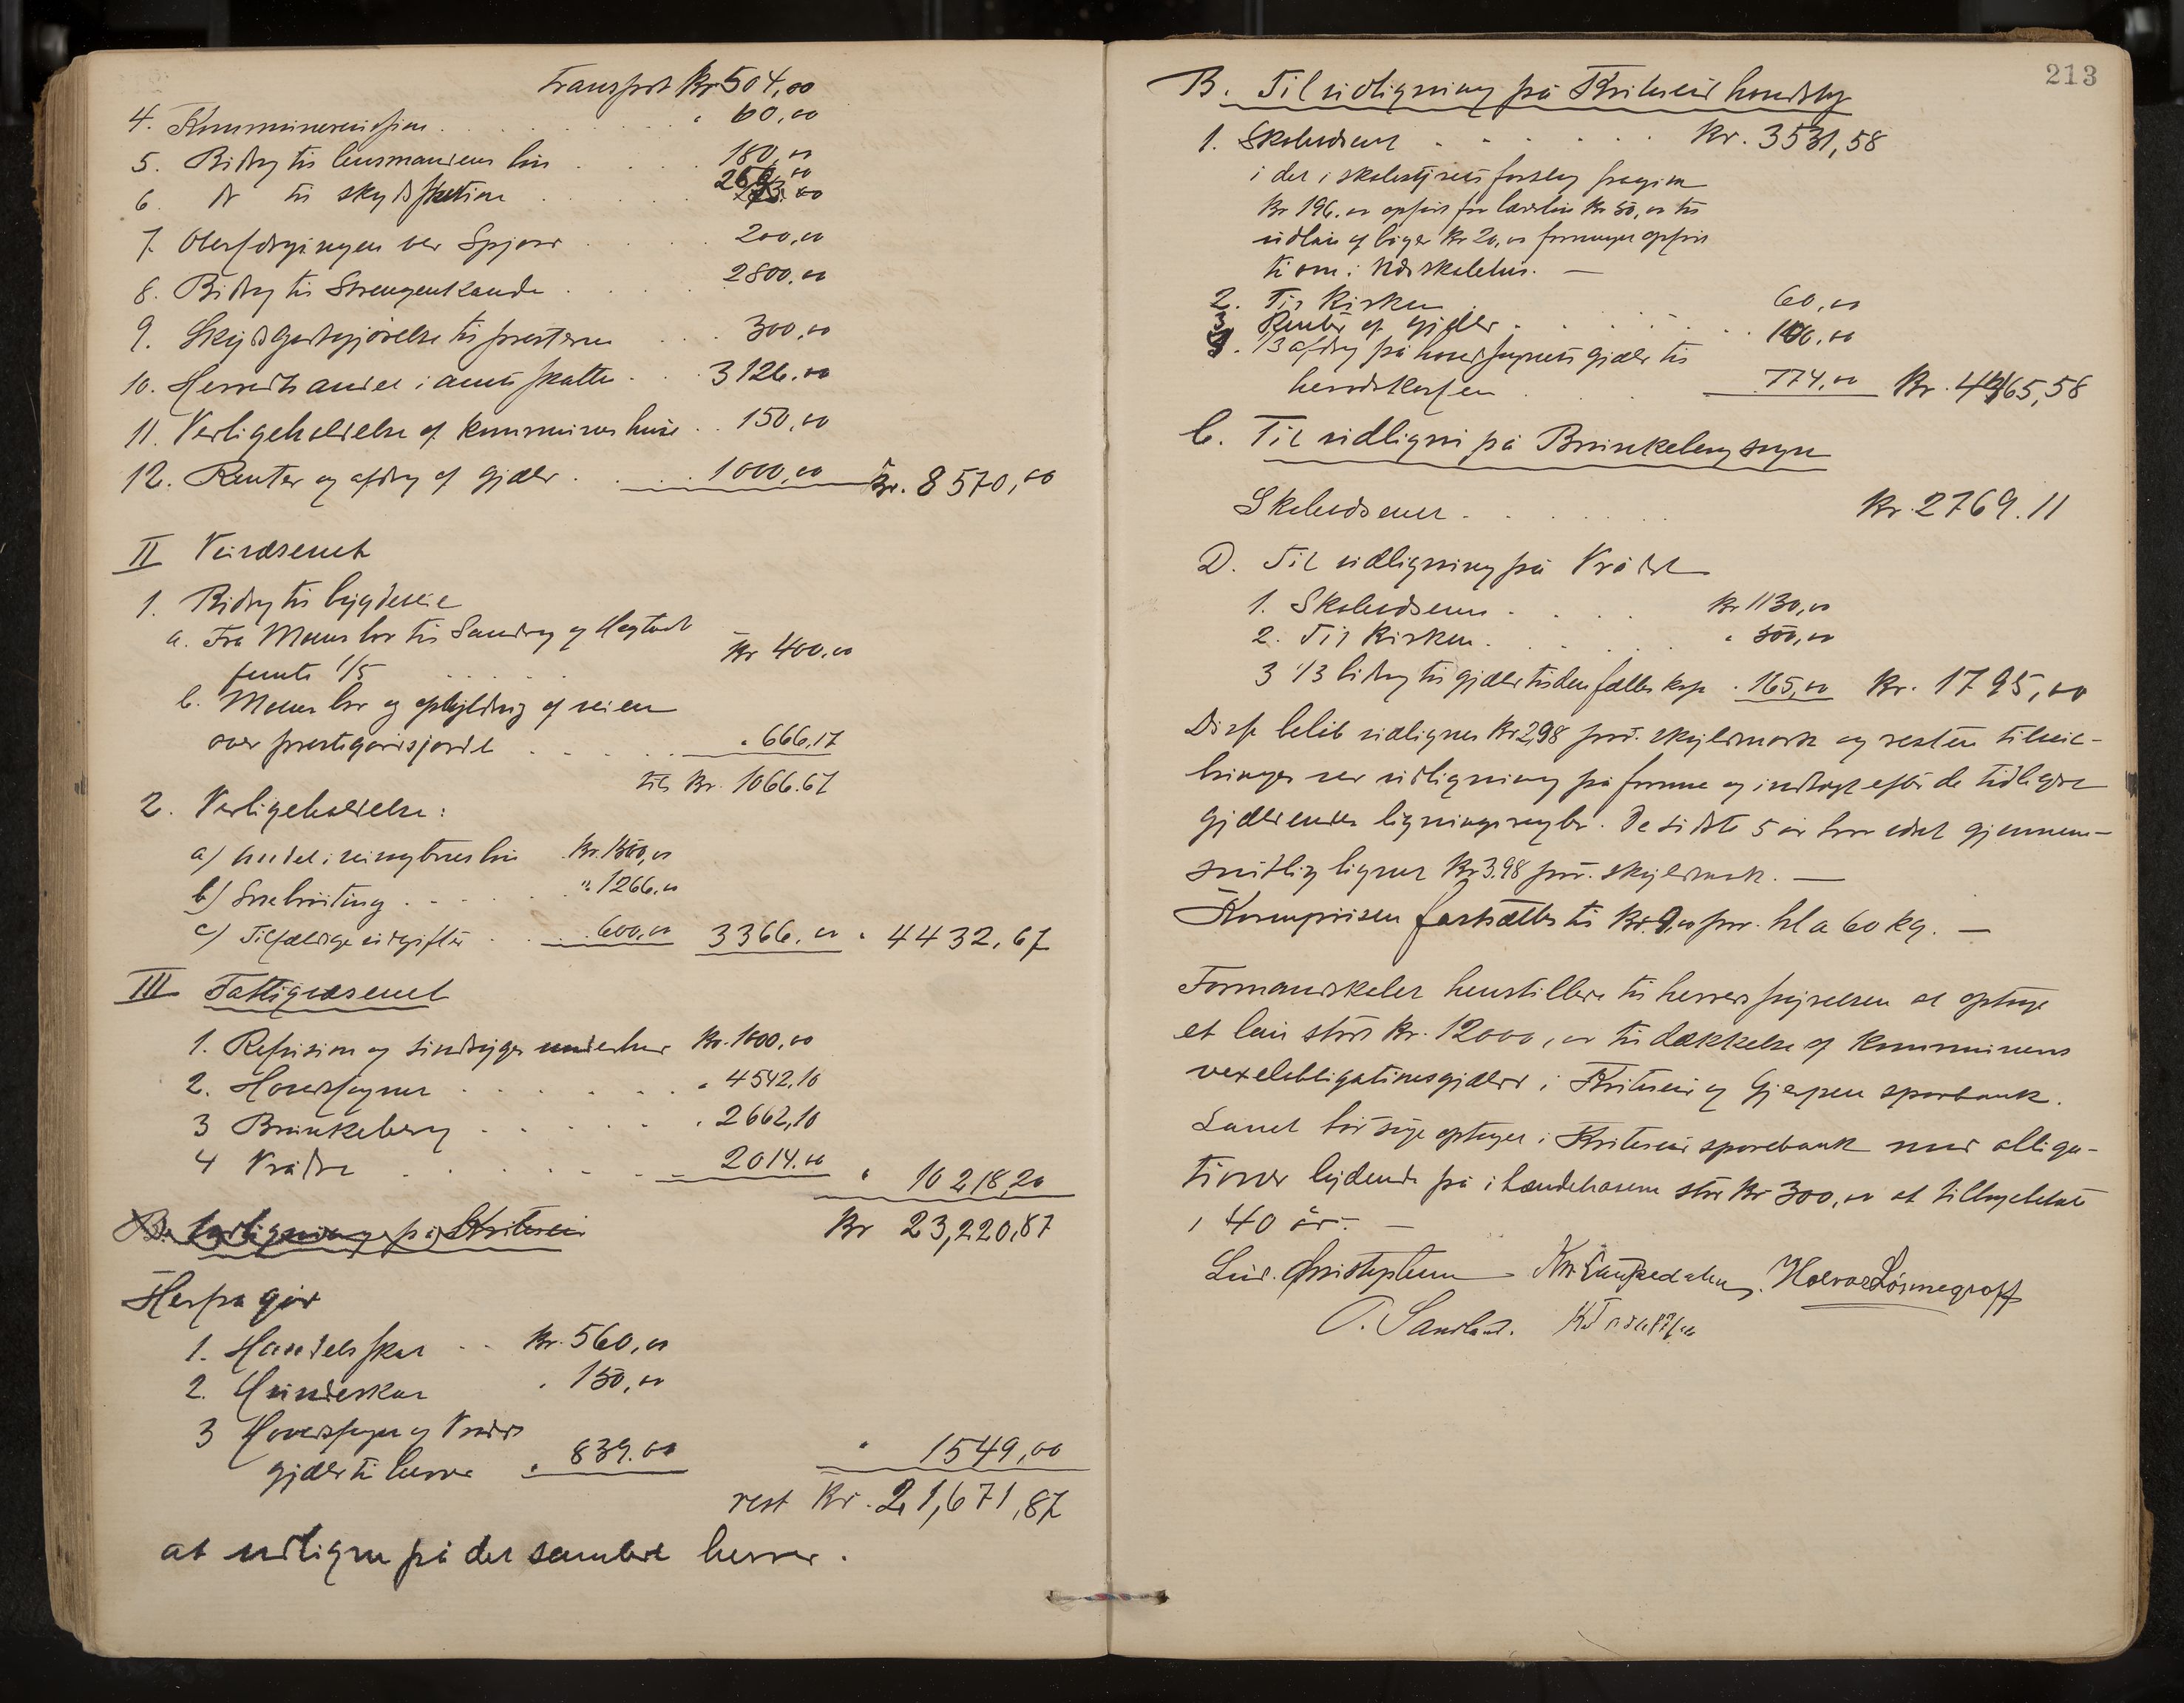 Transport Kr 504,00
4. Kommunerevision . . . . . . " 60,00
5. Bidrag til lensmandens løn . . . . 180,00
6. do til skydsstation . . . . 250,00
7. Oversørgingen ved Spjosr . . . . 200,00
8. Bidrag til Strengenkande . . . . 2800,00
9. Skydsgodtgjørelse til presterne . . . 300,00
10. Herredts andel i amtsskatten . . . 3126,00
11. Vedligeholdelse af kommunens huse . . 150,00
12. Renter og afdrag af gjæld . . . . 1000,00 Kr. 8570,00
II Veivæsenet
1. Bidrag til bygdeveie
a. Fra Moen bro til Sandvg og Høgtvedt
femte 1/5 . . . . Kr 400,00
b. Moens bro og opfyldning af veien
over prestegårdsjordet . . . . " 666,17
tils Kr. 1066.67
2. Vedligeholdelse:
a) Andel i løn Kr. 1500,00
b) Snebrøiting . . . . " 1266,00
c) Tilfældige udgifter . . 600,00 3366,00 " 4432,67
III Fattigvæsenet
1. Refusion og sindsyges underhold Kr. 1000,00
2. Hovedsognet . . . . . " 4542,10
3 Brunkeberg . . . . . " 2662,10
4 Vrådal . . . . . 2014.00 " 10218,20
på Kviteseid Kr 23,220,87
Herfra går
1. Handelsskat . . Kr. 560,00
2. Hundeskat " 150,00
3 Hovedsogn og Vrådals
gjæld til herred " 839.00 " 1549,00
rest Kr. 21,671,87
at udligne på det samlede herred.
213
B. Til udligning på Kviteseid hovedsogn
1. Skolevæsenet . . . . . . Kr. 3531,58
i det i skolestyrets forslag fragåes
Kr 196.00 opført for Kr 50,00 til
udlån af bøger Kr 20,00
2. Til Kirken . . . . 60,00
3 Renter af gjæld . . . . . . 100,00
4. 1/3 afdrag på hovedsognets gjæld til
herredskassen . . . . 774,00 Kr. 4465,58
C. Til udligni på Brunkeberg sogn
Skolevæsenet . . . . . . Kr. 2769.11
D. Til udligning på Vrådal
1. Skolevæsenet . . . . Kr 1130,00
2. Til Kirken . . . . . " 500,00
3 1/3 bidrag til gjæld til den fælles kasse . 165,00 Kr. 1795,00
Disse beløb udlignes Kr 2,98 pr. skyldmark og resten tilveie-
bringes ved udligning på formue og indtægt efter de tidligere
gjældende ligningsregler. De sidste 5 år har været gjennem-
snitlig lignet Kr 3.98 pr. skyldmark. —
Kornprisen fastsættes til Kr. 9,00 pr. hl a 60 kg. —
Formandskabet henstiller til herredsstyrelsen at optage
et lån stort Kr. 12000,00 til dækkelse af kommunens
vexelobligationsgjæld i Kviteseid og Gjerpen sparbank.
Lånet bør søges optaget i Kviteseid sparebank med obliga-
tioner lydende på ihændehaveren stor Kr 300,00 at tilbagebetale
i 40 år. —